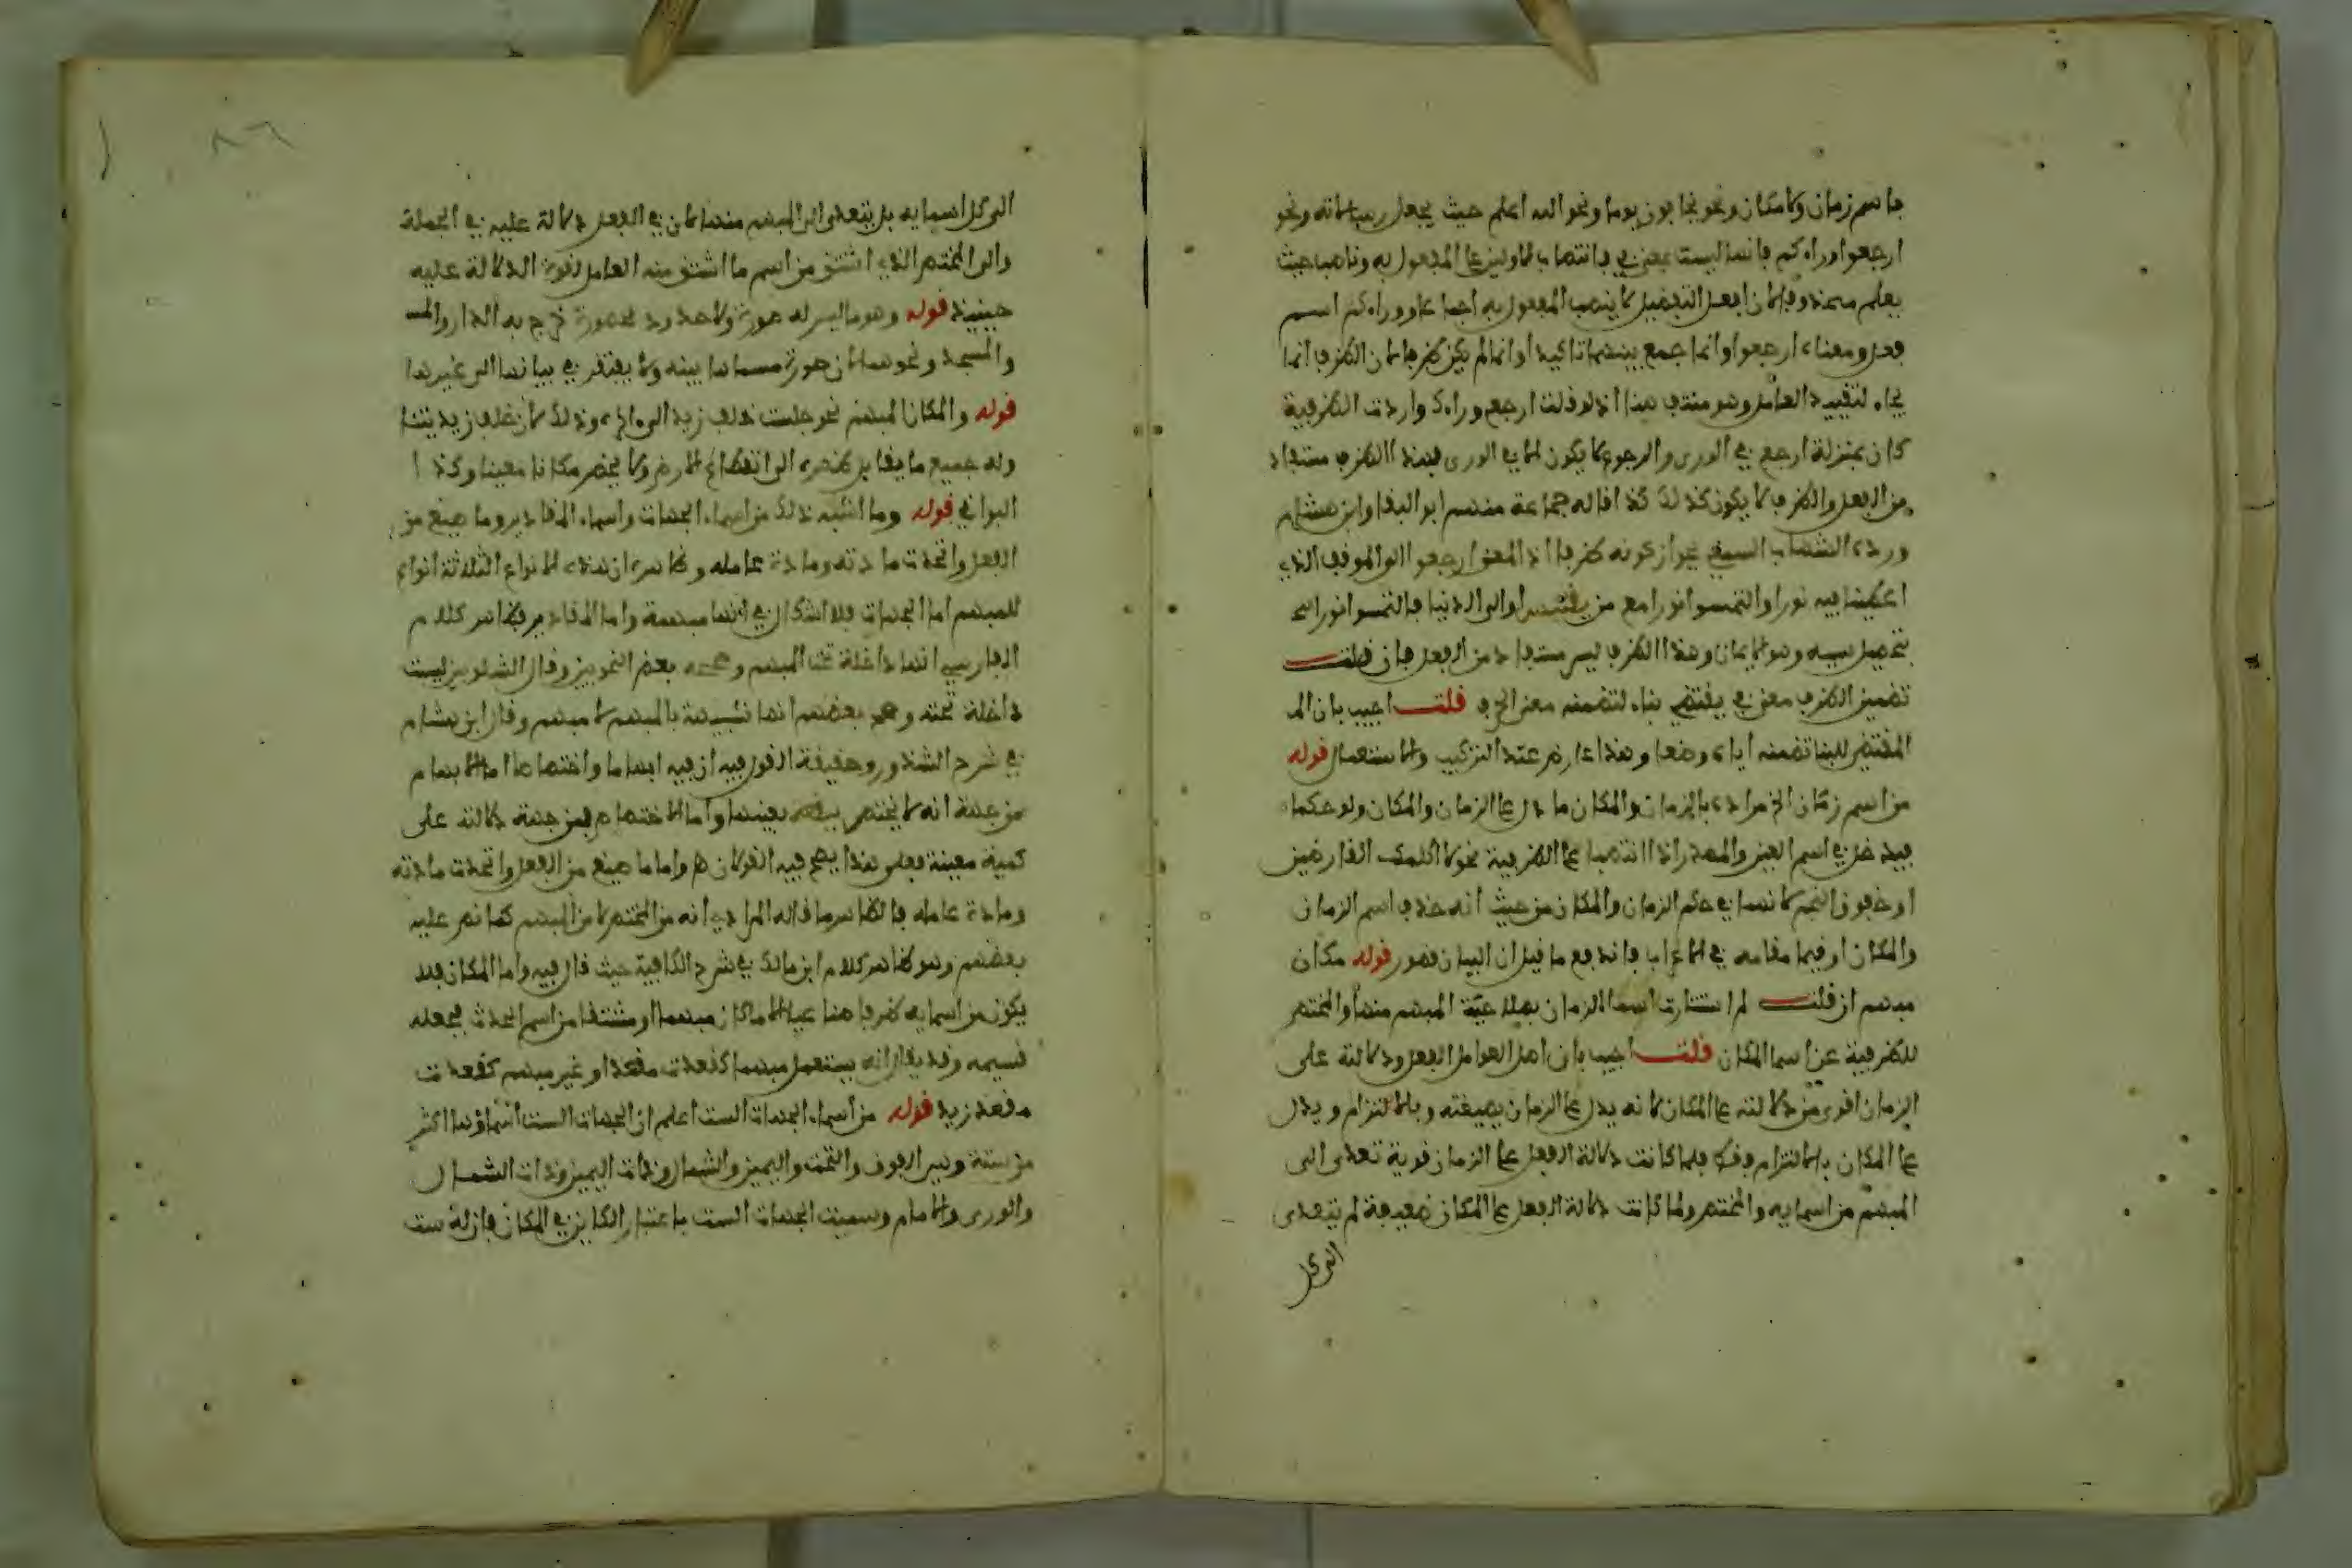 باسم زمان ولا مكان ونحو يخافون يوما ونحو الله اعلم حيث يجعل رسالاته ونحو
ارجعوا وراءكم فانها ليست بمعنى في فانتصاب الاولين على المفعول به وناصب حيث
يعلم محذوفا لان افعل التفضيل لا ينصب المفعول به اجماعا ووراءكم اسم
فعل ومعناه ارجعوا وانما جمع بينهما تاكيدا وانما لم يكن ظرفا لان الظرف انما
يجاء لتقييد العامل وهو منتف هنا اذ لو قلت ارجع وراءك واردت الظرفية
كان بمنزلة ارجع في الورى والرجوع لا يكون الا في الورى فهذا الظرف مستفاد
من الفعل والظرف لا يكون كذلك كذا قاله جماعة منهم ابو البقا وابن هشام
ورده الشهاب السمين بجواز كونه ظرفا اذ المعنى ارجعوا الى الموقف الذي
اعطينا فيه نورا والتمسوا نورا مع من يقتبس او الى الدنيا فالتمسوا نورا
بتحصيل سببه وهو الايمان وهذا الظرف ليس مستفادا من الفعل فان قلت
تضمين الظرف معنى في يقتضي بناءه لتضمنه معنى الحرف قلت اجيب بان الم
المقتضي للبنا تضمنه اياه وضعا وهذا عارض عند التركيب والاستعمال قوله
من اسم زمان الخ مراده بالزمان والمكان ما دل على الزمان والمكان ولو حكما
فيدخل في اسم العين والمصدر اذا انتصبا على الظرفية نحو لا اكلمك القارضين
او خفوق النجم لانهما في حكم الزمان والمكان من حيث انه حذف اسم الزمان
والمكان اوقيما مقامه في الاعراب فاندفع ما قيل ان البيان قصور قوله مكان
مبهم ان قلت لم استتارت اسما الزمان بصلاحية المبهم منها والمختص
للظرفية عن اسما المكان قلت اجيب بان اصل العوامل الفعل ودلالته على
الزمان اقوى من دلالته على المكان لانه يدل على الزمان بصيغته وبالالتزام ويدل
على المكان بالالتزام فقط فلما كانت دلالة الفعل على الزمان قوية تعدى الى
المبهم من اسمايه والمختص ولما كانت دلالة الفعل على المكان ضعيفة لم يتعدى
الى كل
٨٦
الى كل اسمايه بل يتعدى الى المبهم منها لان في الفعل دلالة عليه في الجملة
والى المختص الذي اشتق من اسم ما اشتق منه العامل لقوة الدلالة عليه
حينيذ قوله وهو ما ليس له صورة ولا حدود محصورة خرج به الدار والمس
والمسجد ونحوهما لان صورة مسماها بينه ولا يفتقر في بيانها الى غيرها
قوله والمكان المبهم نحو جلست خلف زيد الى اخره وذلك لان خلف زيد يتنا
وله جميع ما يقابل ظهره الى انقطاع الارض ولا يخص مكانا معينا وكذا
البواقي قوله وما اشبه ذلك من اسماء الجهات واسماء المقادير وما صيغ من
الفعل واتحدت مادته ومادة عامله وظاهره ان هذه الانواع الثلاثة انواع
للمبهم اما الجهات فلا اشكال في انها مبهمة واما المقادير فظاهر كلام
الفارسي انها داخلة تحت المبهم وصححه بعض النحويين وقال الشلوبين ليست
داخلة تحته وصحح بعضهم انها شبيهة بالمبهم لا مبهم وقال ابن هشام
في شرح الشذور وحقيقة القول فيه ان فيه ابهاما واختصاصا اما الابهام
من جهة انه لا يختص ببقعة بعينها واما الاختصاص فمن جهة دلالته على
كمية معينة فعلى هذا يصح فيه القولان هو واما ما صيغ من الفعل واتحدت مادته
ومادة عامله فالظاهر ما قاله المرادي انه من المختص لا من المبهم كما نص عليه
بعضهم وهو ظاهر كلام ابن مالك في شرح الكافية حيث قال فيه واما المكان فلا
يكون من اسمايه ظرفا صناعيا الا ما كان مبهما او مشتقا من اسم الحدث فجعله
قسيمه وقد يقال انه يستعمل مبهما كقعدت مقعدا وغير مبهم كقعدت
مقعد زيد قوله من اسماء الجهات الست اعلم ان الجهات الست اسماؤها اكثر
من ستة وهي الفوق والتحت واليمين والشمال وذات اليمين وذات الشمال
والورى والامام وسميت الجهات الست باعتبار الكاين في المكان فان له ست